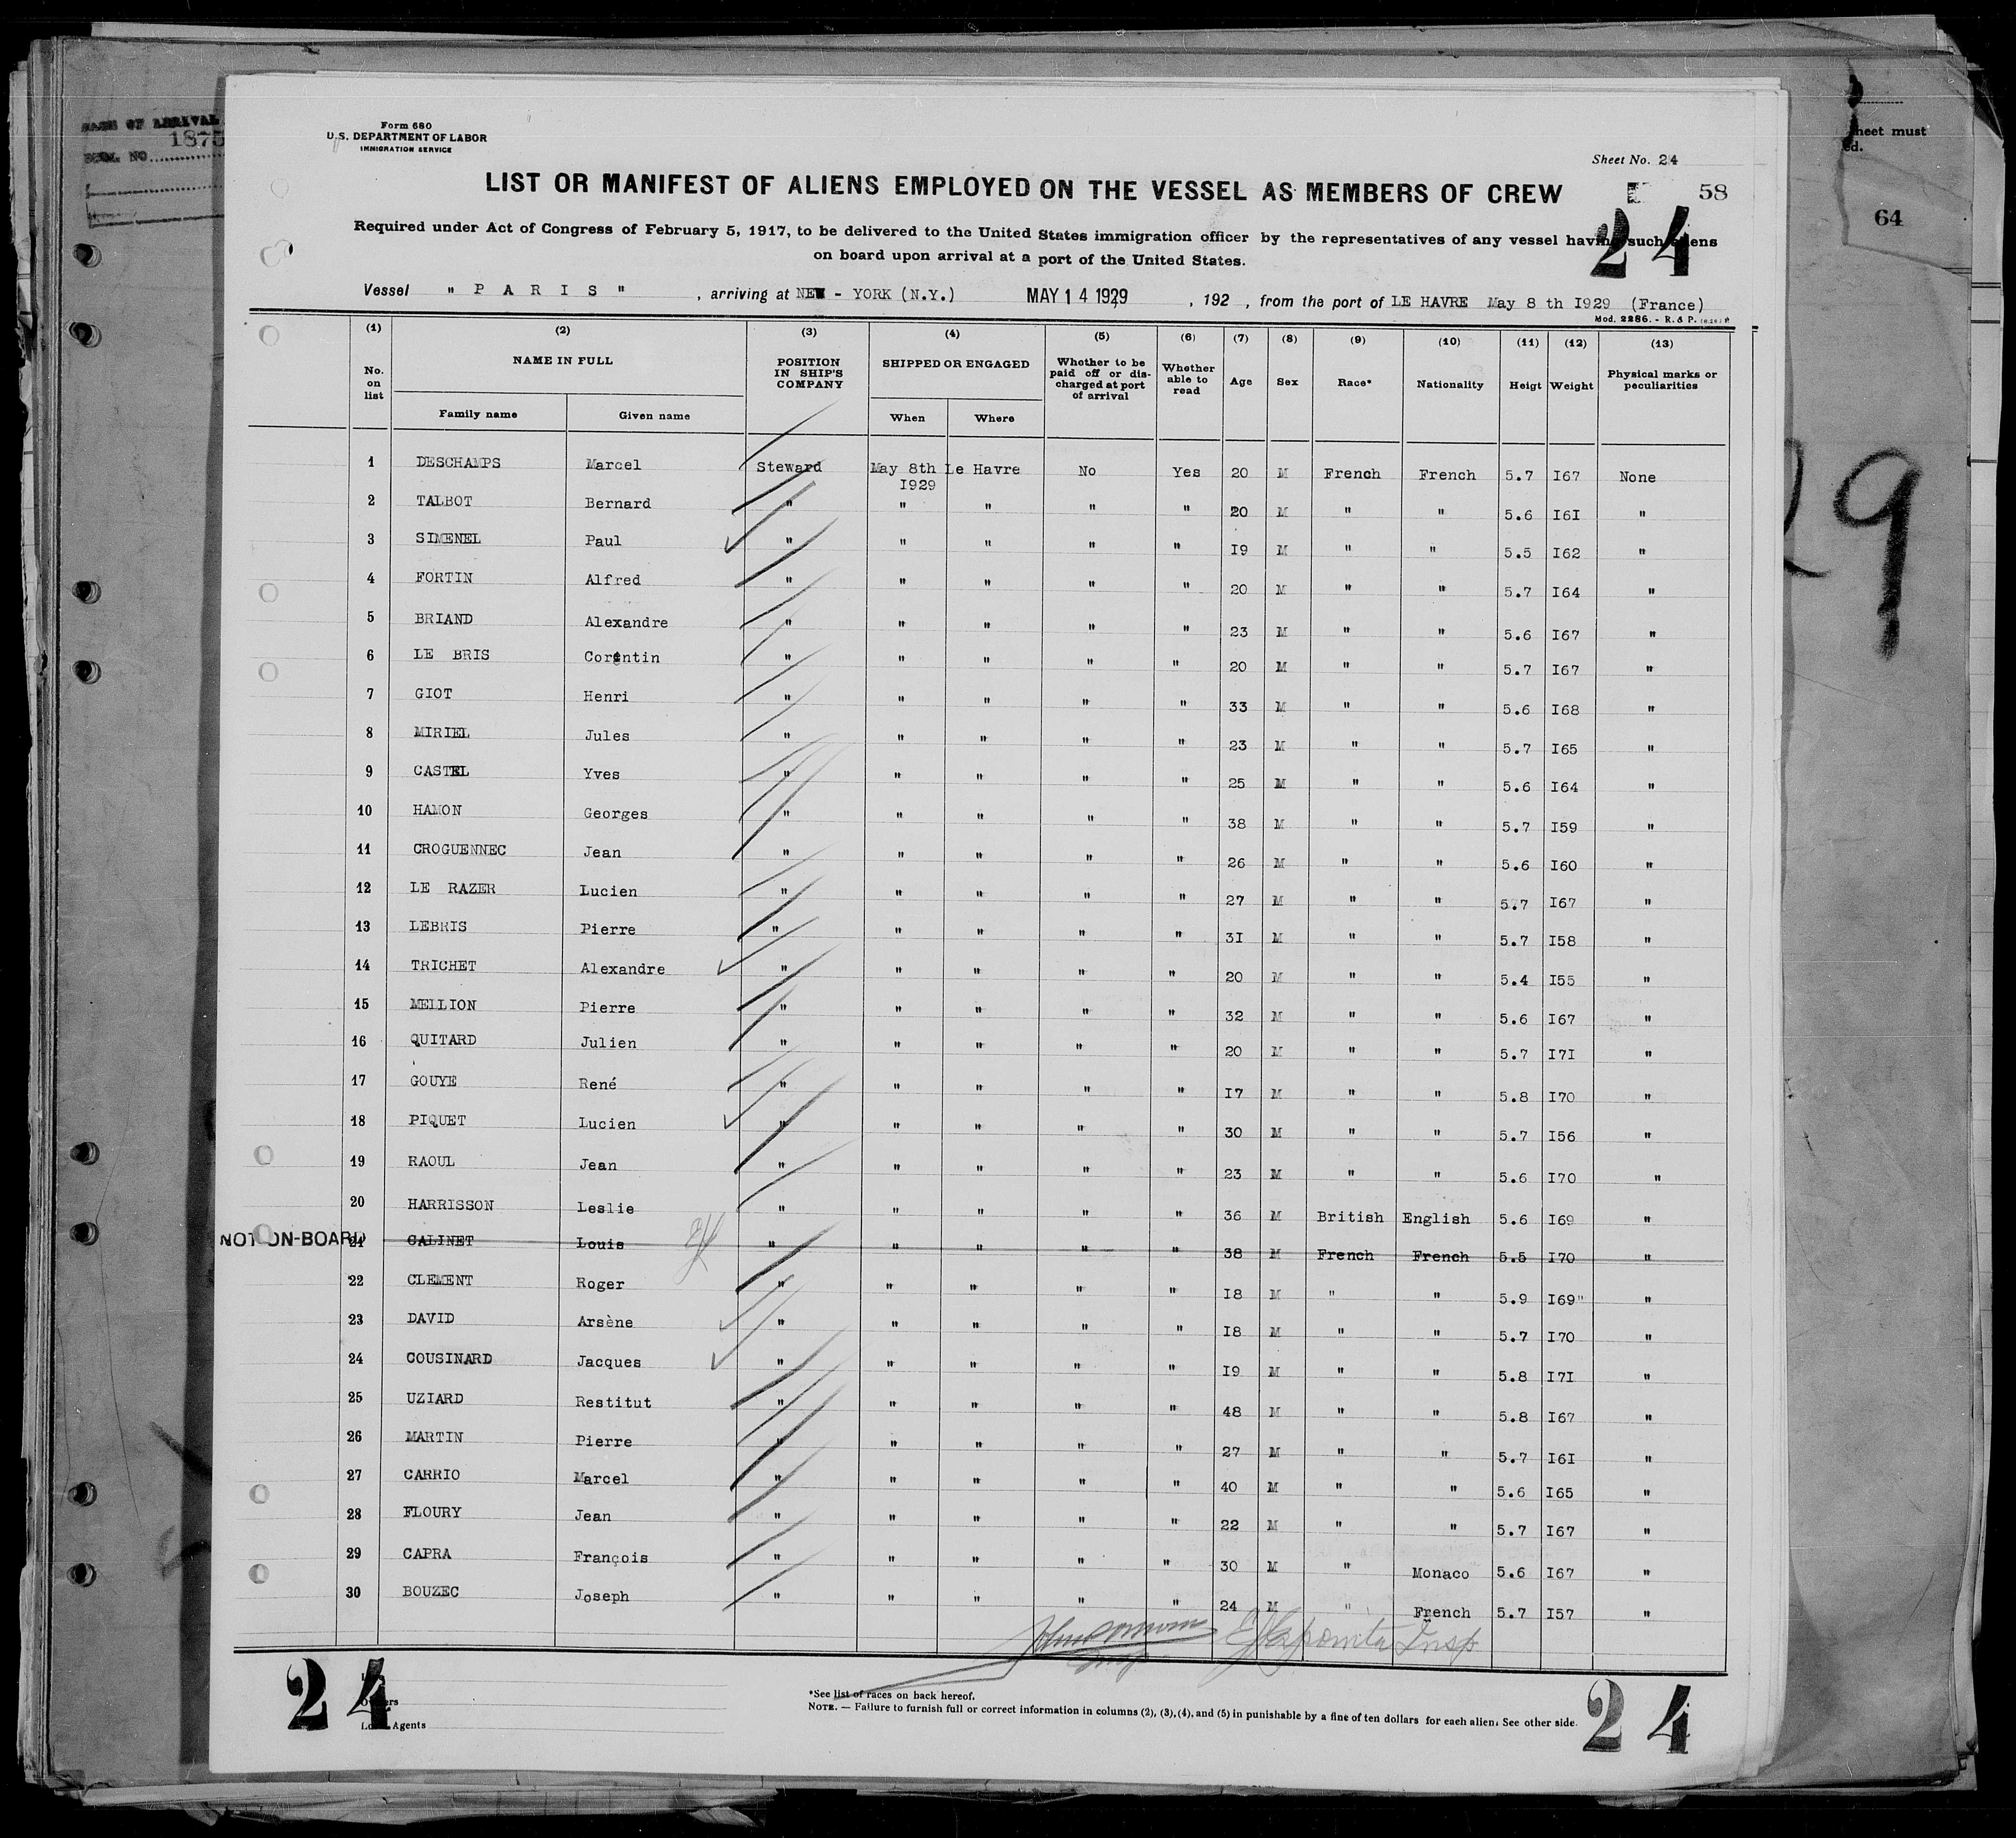 Form 680
U.S. DEPARTMENT OF LABOR
IMMIGRATION SERVICE
1875
heet must
ed.
64
Sheet No. 24
LIST OR MANIFEST OF ALIENS EMPLOYED ON THE VESSEL AS MEMBERS OF CREW
58
24
Required under Act of Congress of February 5, 1917, to be delivered to the United States immigration officer by the representatives of any vessel having such aliens
on board upon arrival at a port of the United States.
Vessel " P A R I S " , arriving at NEW - YORK (N.Y.) MAY 14 1929 , 192 , from the port of LE HAVRE May 8 th I929 (France)
Mod. 2286. - R. & P.
(1) (2) (3) (4) (5) (6) (7) (8) (9) (10) (11) (12) (13)
No. on list NAME IN FULL POSITION IN SHIP'S COMPANY SHIPPED OR ENGAGED Whether to be paid off or discharged at port of arrival Whether able to read Age Sex Race* Nationality Heigt Weight Physical marks or peculiarities
Family name Given name When Where
1 DESCHAMPS Marcel Steward May 8th I929 Le Havre No Yes 20 M French French 5.7 I67 None
2 TALBOT Bernard " " " " " 20 M " " 5.6 I6I "
3 SIMENEL Paul " " " " " I9 M " " 5.5 I62 "
4 FORTIN Alfred " " " " " 20 M " " 5.7 I64 "
5 BRIAND Alexandre " " " " " 23 M " " 5.6 I67 "
6 LE BRIS Corentin " " " " " 20 M " " 5.7 I67 "
7 GIOT Henri " " " " " 33 M " " 5.6 I68 "
8 MIRIEL Jules " " " " " 23 M " " 5.7 I65 "
9 CASTEL Yves " " " " " 25 M " " 5.6 I64 "
10 HAMON Georges " " " " " 38 M " " 5.7 I59 "
11 CROGUENNEC Jean " " " " " 26 M " " 5.6 I60 "
12 LE RAZER Lucien " " " " " 27 M " " 5.7 I67 "
13 LEBRIS Pierre " " " " " 3I M " " 5.7 I58 "
14 TRICHET Alexandre " " " " " 20 M " " 5.4 I55 "
15 MELLION Pierre " " " " " 32 M " " 5.6 I67 "
16 QUITARD Julien " " " " " 20 M " " 5.7 I7I "
17 GOUYE René " " " " " I7 M " " 5.8 I70 "
18 PIQUET Lucien " " " " " 30 M " " 5.7 I56 "
19 RAOUL Jean " " " " " 23 M " " 5.6 I70 "
20 HARRISSON Leslie " " " " " 36 M British English 5.6 I69 "
NOT ON-BOARD 21 CALINET Louis " " " " " 38 M French French 5.5 I70 "
22 CLEMENT Roger " " " " " I8 M " " 5.9 I69" "
23 DAVID Arsène " " " " " I8 M " " 5.7 I70 "
24 COUSINARD Jacques " " " " " I9 M " " 5.8 I7I "
25 UZIARD Restitut " " " " " 48 M " " 5.8 I67 "
26 MARTIN Pierre " " " " " 27 M " " 5.7 I6I "
27 CARRIO Marcel " " " " " 40 M " " 5.6 I65 "
28 FLOURY Jean " " " " " 22 M " " 5.7 I67 "
29 CAPRA François " " " " " 30 M " Monaco 5.6 I67 "
30 BOUZEC Joseph " " " " " 24 M " French 5.7 I57 "
Insp
24
Agents
*See list of races on back hereof.
NOTE. — Failure to furnish full or correct information in columns (2), (3), (4), and (5) in punishable by a fine of ten dollars for each alien. See other side.
24